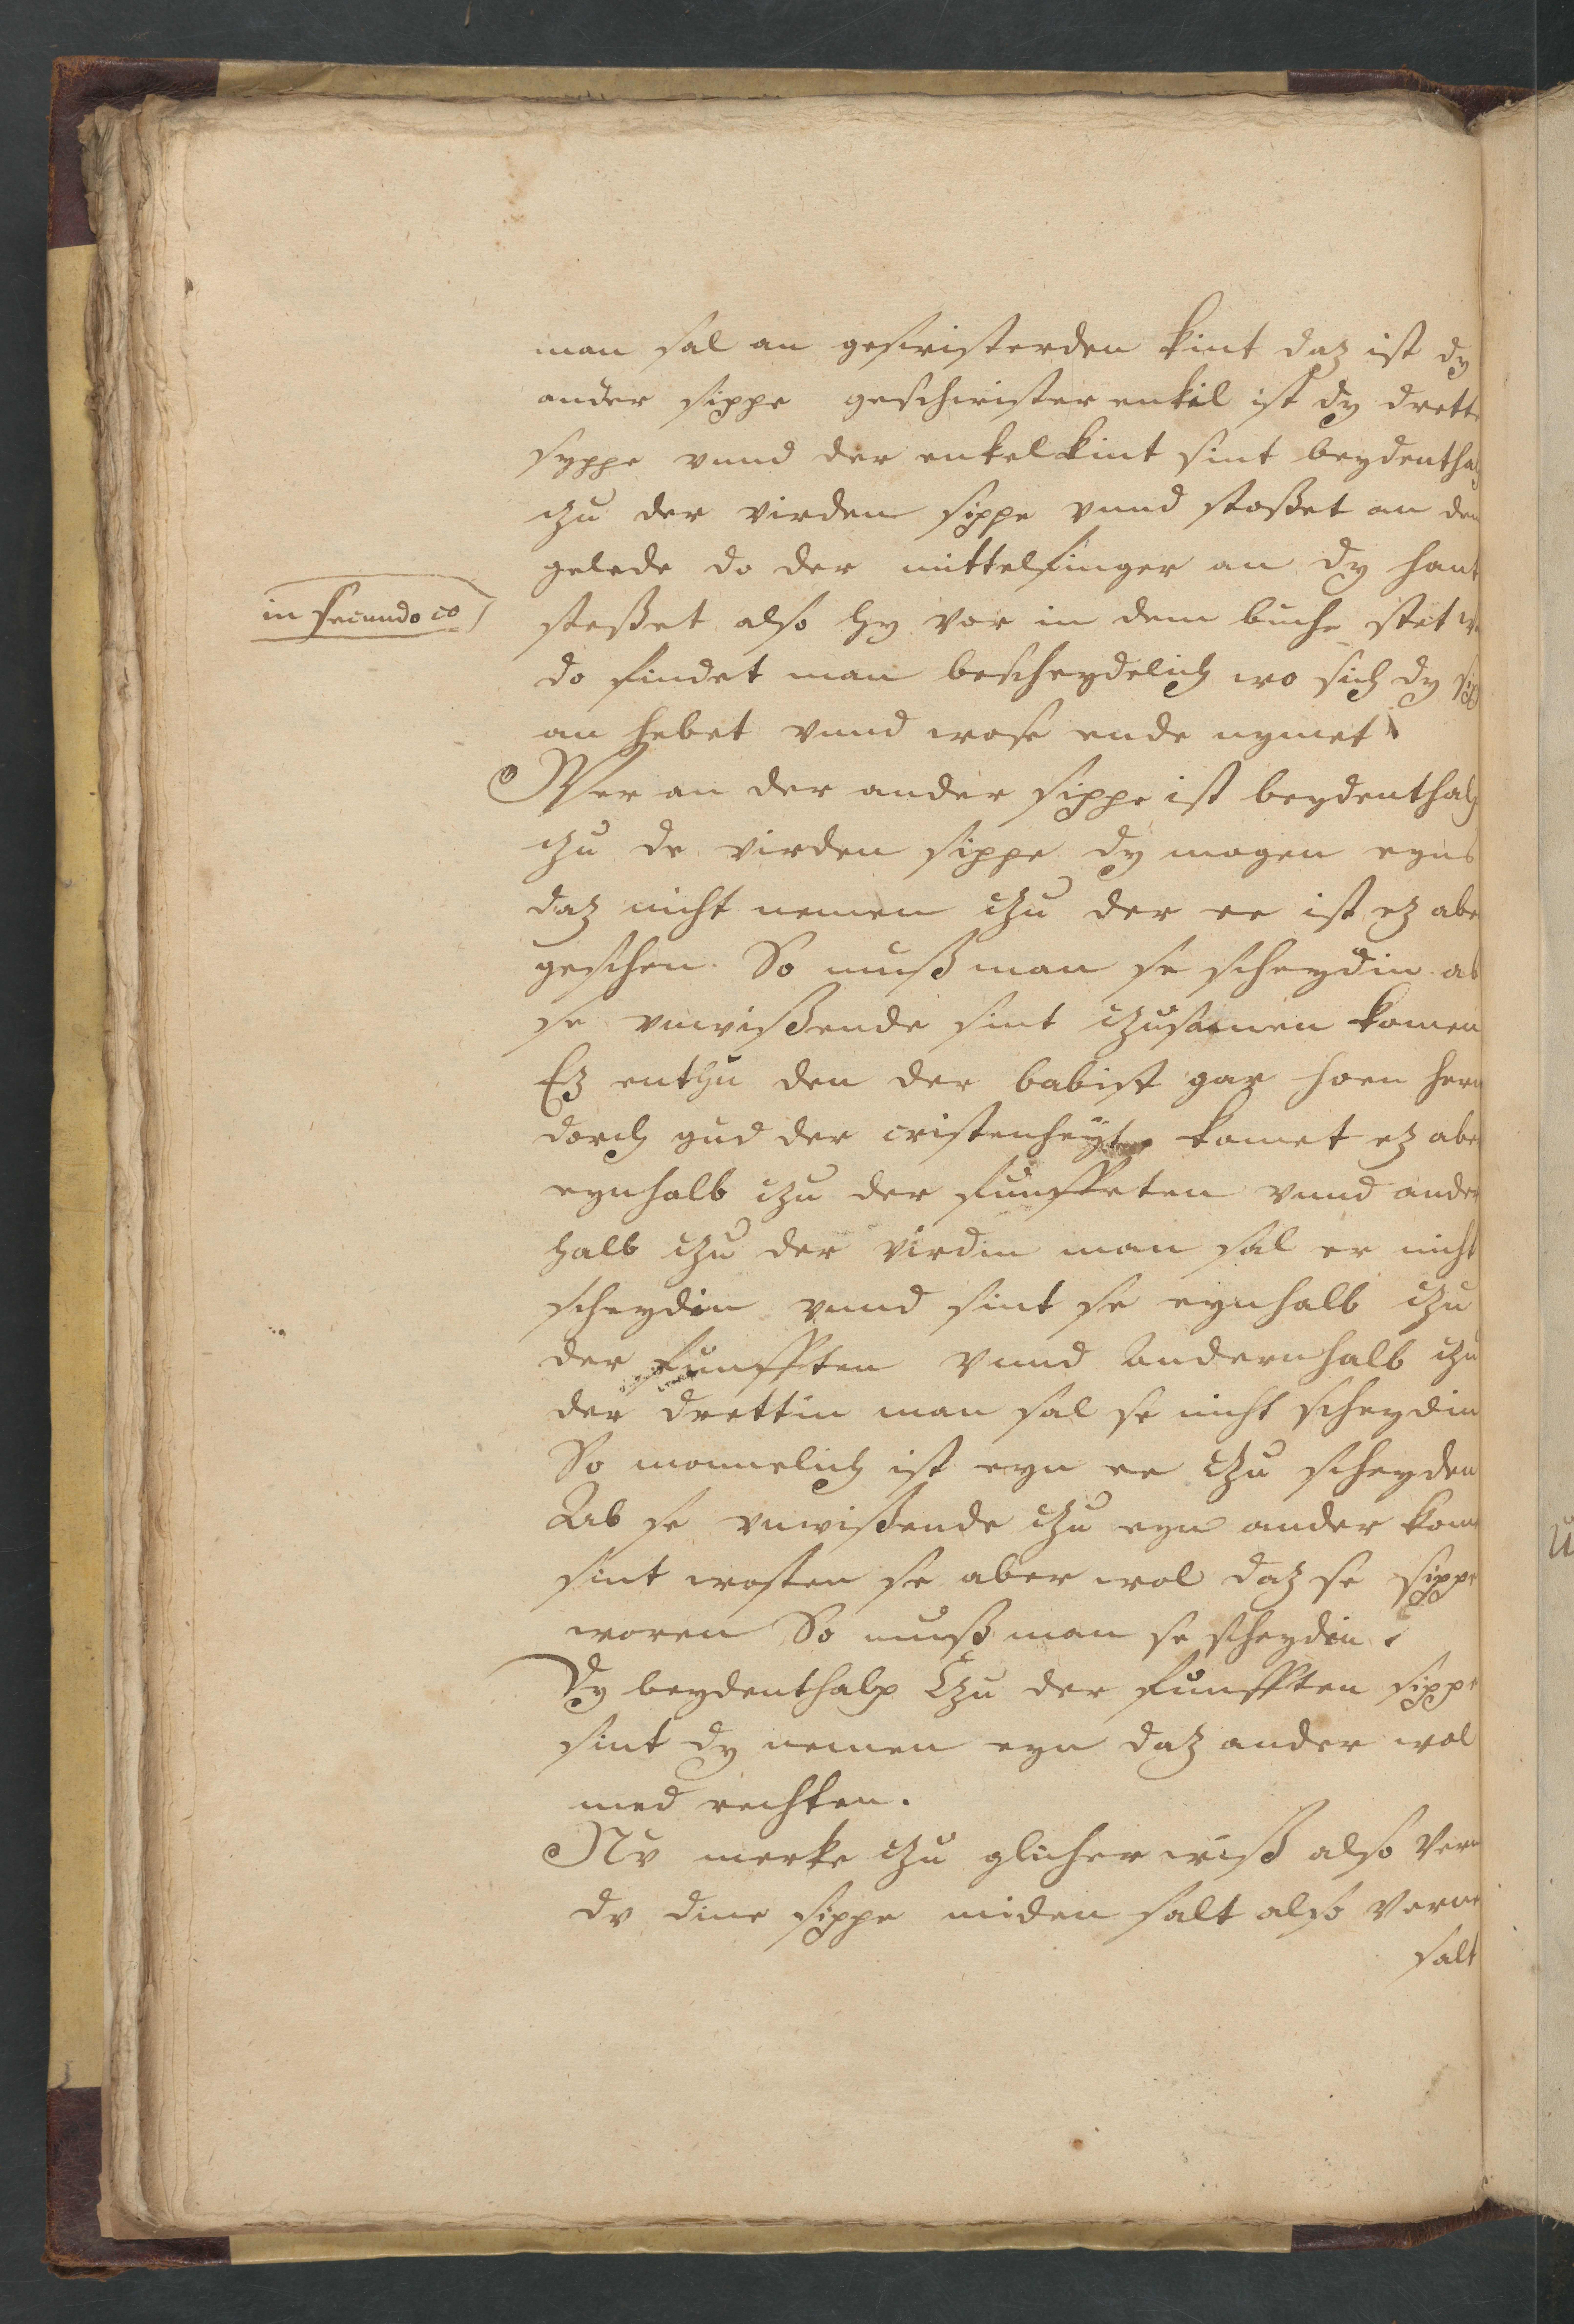 man sal an geswisterden kint daz ist dy
ander sippe geschwister enkil ist dy drett
syppe vnnd der enkelkint sint beydenthal
czu der virden sippe vnnd stosset an den
gelede do der mittelfinger an dy hant
in secundo co
stosset also hy vor in dem buche stet
do findet man bescheydelich wo sich dy sip
an hebet vnnd wo se ende nymet
Wer an der ander sippe ist beydenthalp
czu de virden sippe dy mogen eyns
daz nicht nemen czu der ee ist ez abe
geschen. So muß man se scheydin ab
se vnwißende sint czusamen komen
Ez enthu den der babist gar hoen hern
dorch gud der cristenheyt. komet ez abe
eynhalb czu der funfften vnnd ander
halb czu der virdin man sal er nicht
scheydin vnnd sint se eynhalb czu
der funfften vnnd andernhalb czu
der drettin man sal se nicht scheydin
So mounelich ist eyn ee czu scheyden
Ab se vnwißende czu eyn ander kome
sint wosten se aber wol daz se sippe
woren So muß man se scheydin.
Dy beydenthalp Czu der funfften sippe
sint dy nemen eyn daz ander wol
med rechten.
Nv merke czu glicher wiß also vern
dv dine sippe miden salt also verne
salt